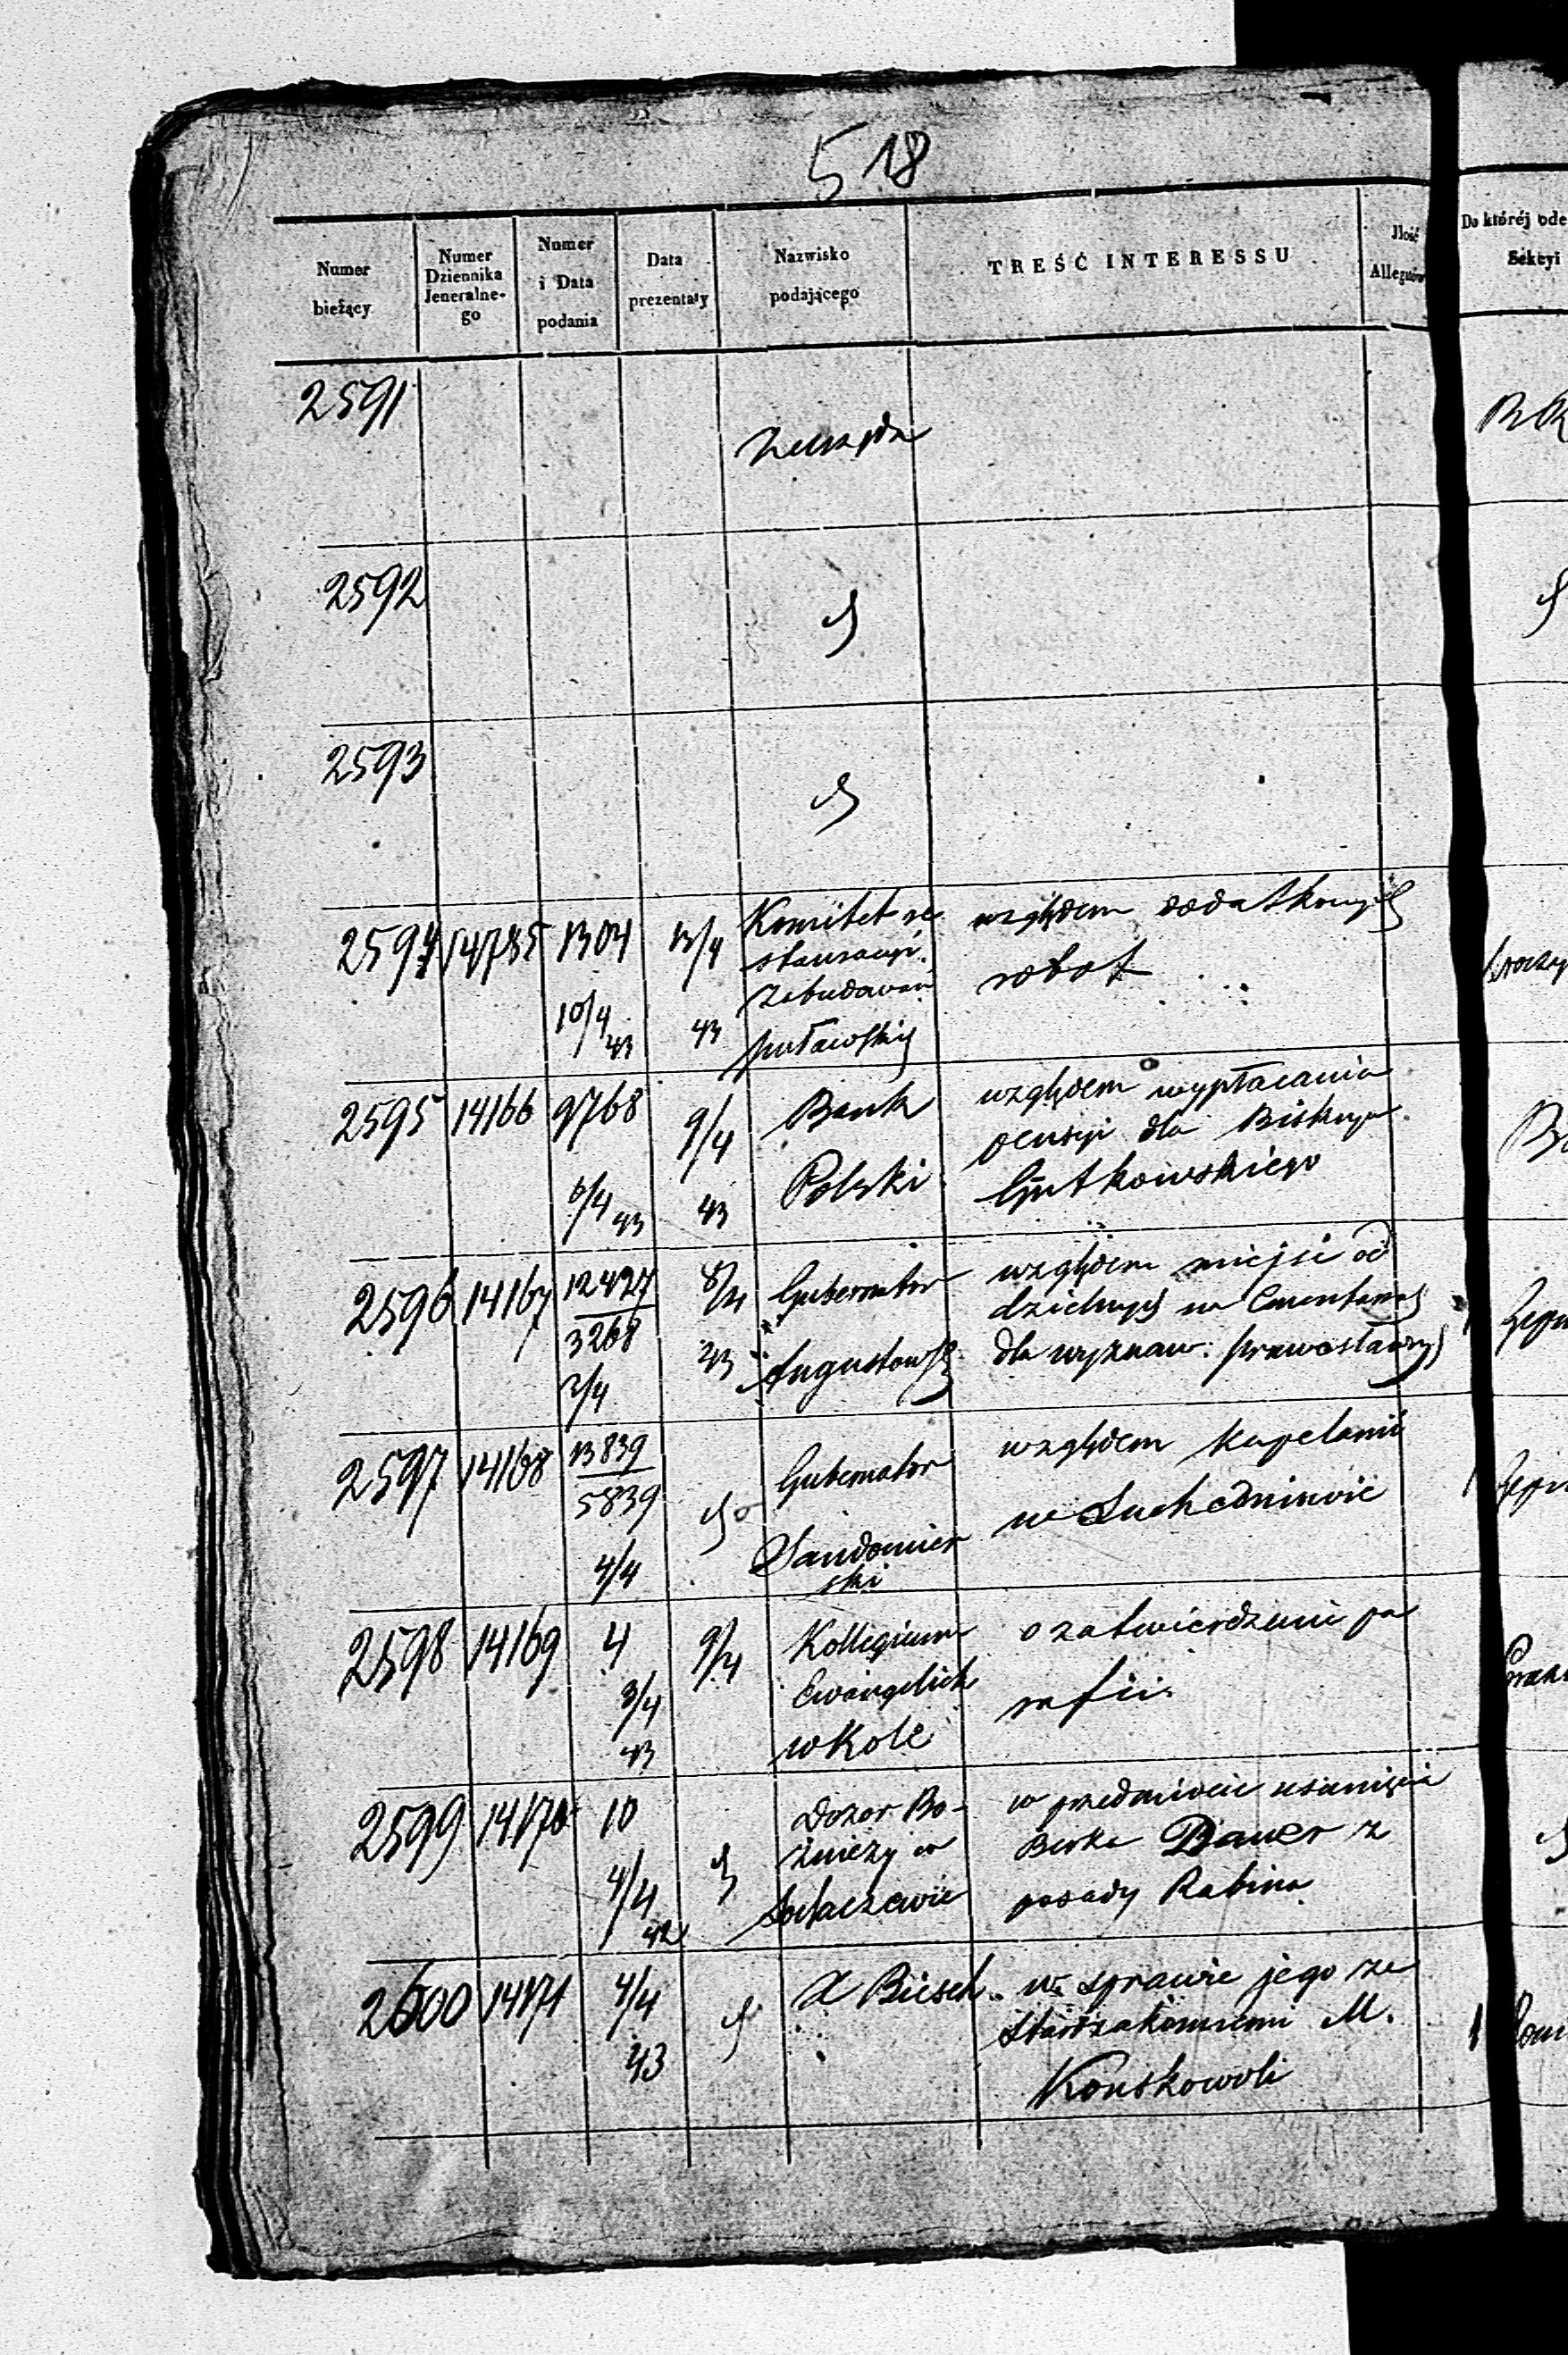 518
Numer bieżący
Numer Dziennika Jeneralnego
Numer i Data podania
Data prezentaty
Nazwisko podającego
TREŚĆ INTERESSU
Ilość Allegatów
Do któréj ode
Sekcyi
2591
2592
2593
2594 14785 1304 13/4 Komitet re względem dodatkowych
stauracyi. robot
10/4 43 43 zabudowań
puławskich
2595 14166 9768 9/4 Bank względem wypłacania
pensyi dla Biskupa
6/4 43 43 Polski Gutkowskiego
2596 14167 12427 8/4 Gubernator względem miejsc od
3268 43 dzielnych na Cmentarzach
2/4 Augustowski dla wyznaw: prawosławnych
2597 14168 13839 Gubernator względem kapelanii
5839 do w Suchedniowie
4/4 Sandomier
ski
2598 14169 4 9/4 Kollegium o zatwierdzenie pa
3/4 Ewangelick rafii.
43 w Kole
2599 14170 10 Dozor Bo- w przedmiocie usunięcia
4/4 żniczy w Berka Bauer z
42 Sochaczewie posady Rabina
2600 14171 4/4 X Biesek w sprawie jego ze
43 M.
Konskowoli